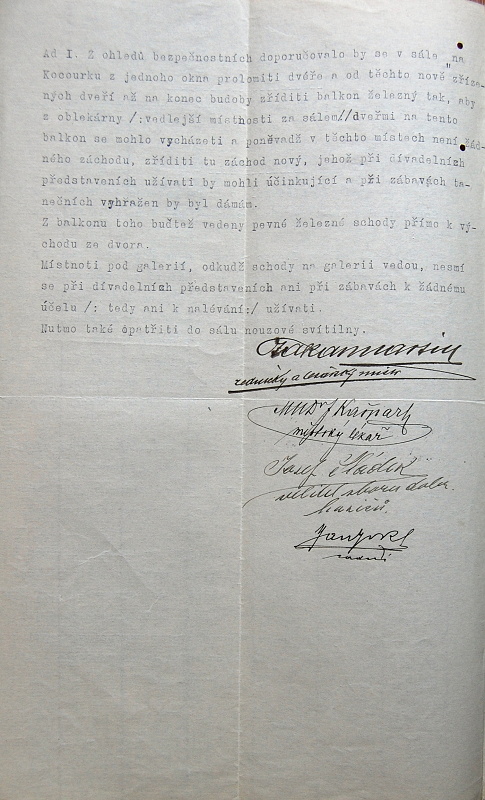 Ad I. Z ohledů bezpečnostních doporučovalo by se v sále „na
Kocourku z jednoho okna prolomiti dvéře a od těchto nově zříze-
ných dveří až na konec budoby zříditi balkon železný tak, aby
z oblekárny /:vedlejší místnosti za sálem// dveřmi na tento
balkon se mohlo vycházeti a poněvadž v těchto místech není žád-
ného záchodu, zříditi tu záchod nový, jehož při divadelních
představeních užívati by mohli účinkující a při zábavách ta-
nečních vyhražen by byl dámám.
Z balkonu toho buďtež vedeny pevné železné schody přímo k vý-
chodu ze dvora.
Místnoti pod galerií, odkudž schody na galerii vedou, nesmí
se při divadelních představeních ani při zábavách k žádnému
účelu /: tedy ani k nalévání:/ užívati.
Nutmo také opatřiti do sálu nouzové svítilny.
zednický a tesařský mistr
MUDr J Kašpar
městský lékař
Josef Sládek
velitel sboru dobr.
hasičů.
Jan
radní